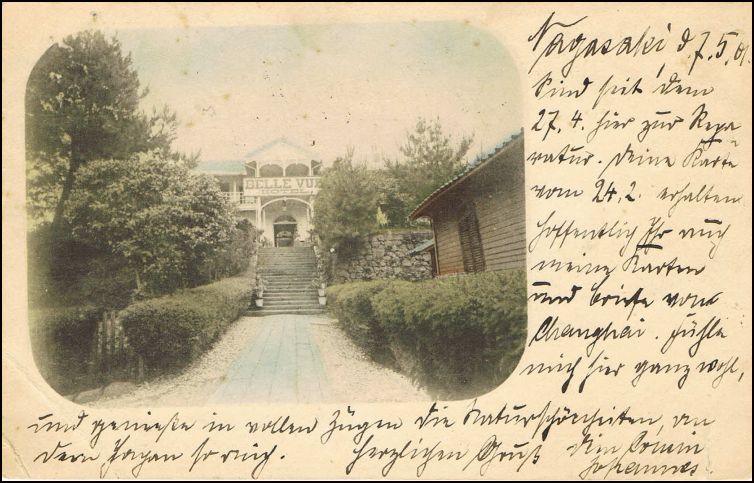 BELLE VUE
HOTEL
Nagasaki, d. 7.5.01.
Sind seit dem
27.4. hier zur Repa
ratur. Deine Karte
vom 24.2. erhalten
hoffentlich Ihr auch
meine Karten
und Briefe von
Changhai. Fühle
mich hier ganz wohl,
und genieße in vollen Zügen die Naturschönheiten, an
denen Japan so reich. Herzlichen Gruß
Dein
Johannes.